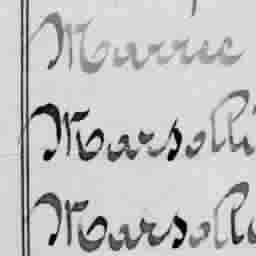 Marrec
Marsolli
Marsolli